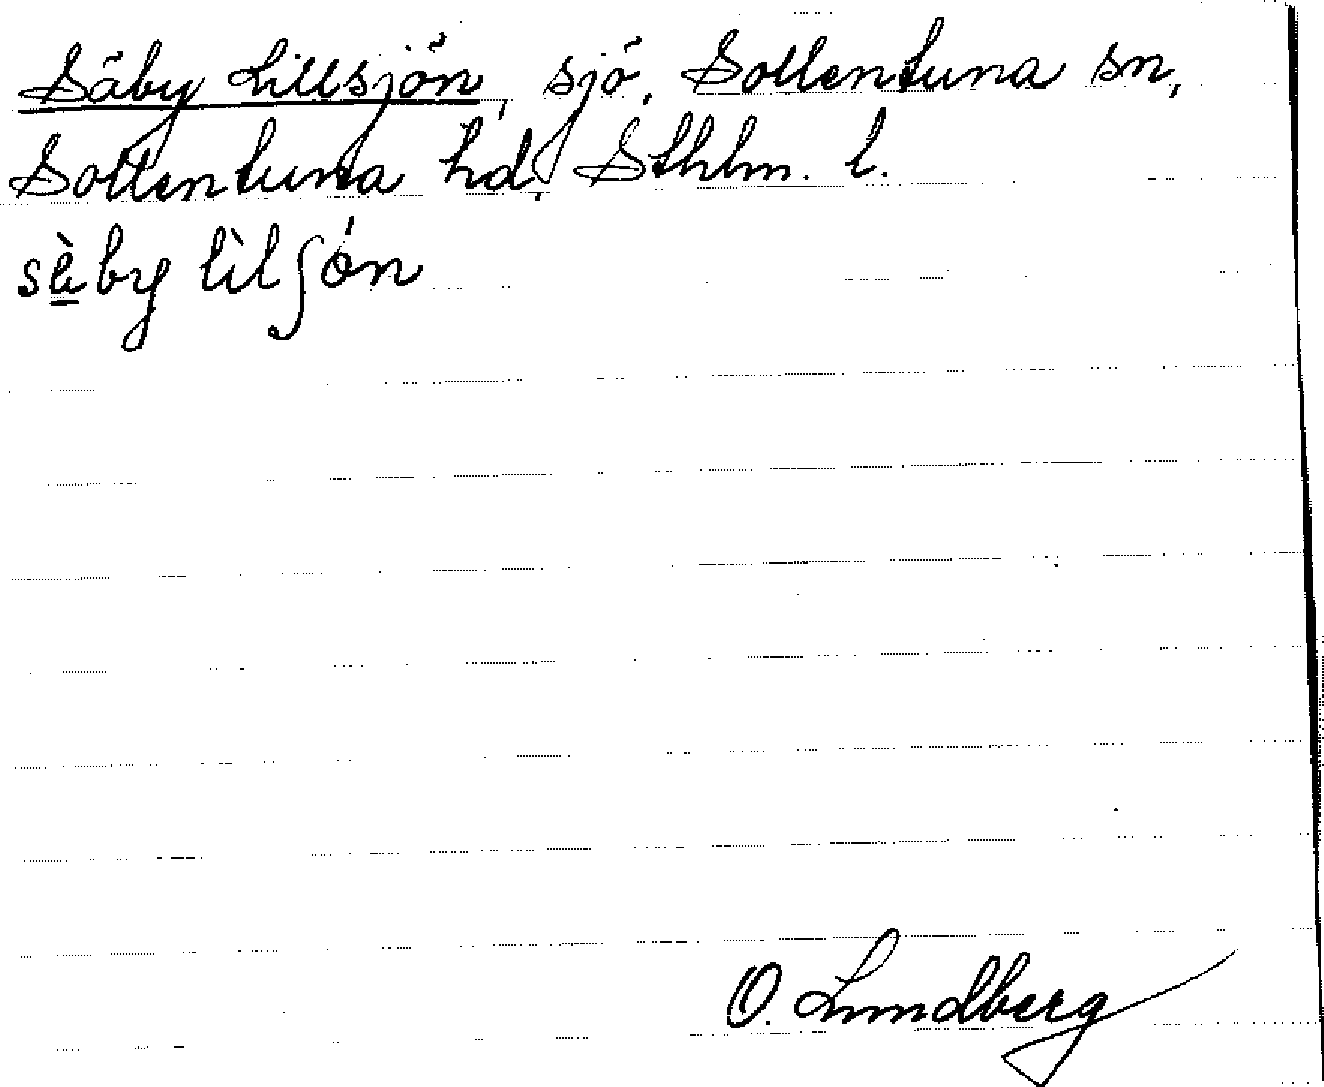 Säby Lillsjön, sjö, Sollentuna sn,
Sollentuna hd, Sthlm. l.
sè̲by lìlʃón
O. Lundberg